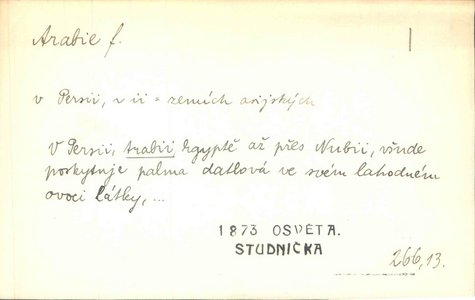 Arabie f.
v Persii, v ii = zemích asijských
V Persii, Arabii, Egyptě až přes Nubii, všude
poskytuje palma datlová ve svém lahodném
ovoci látky, ...
1873 OSVĚTA.
STUDNIČKA
266,13.